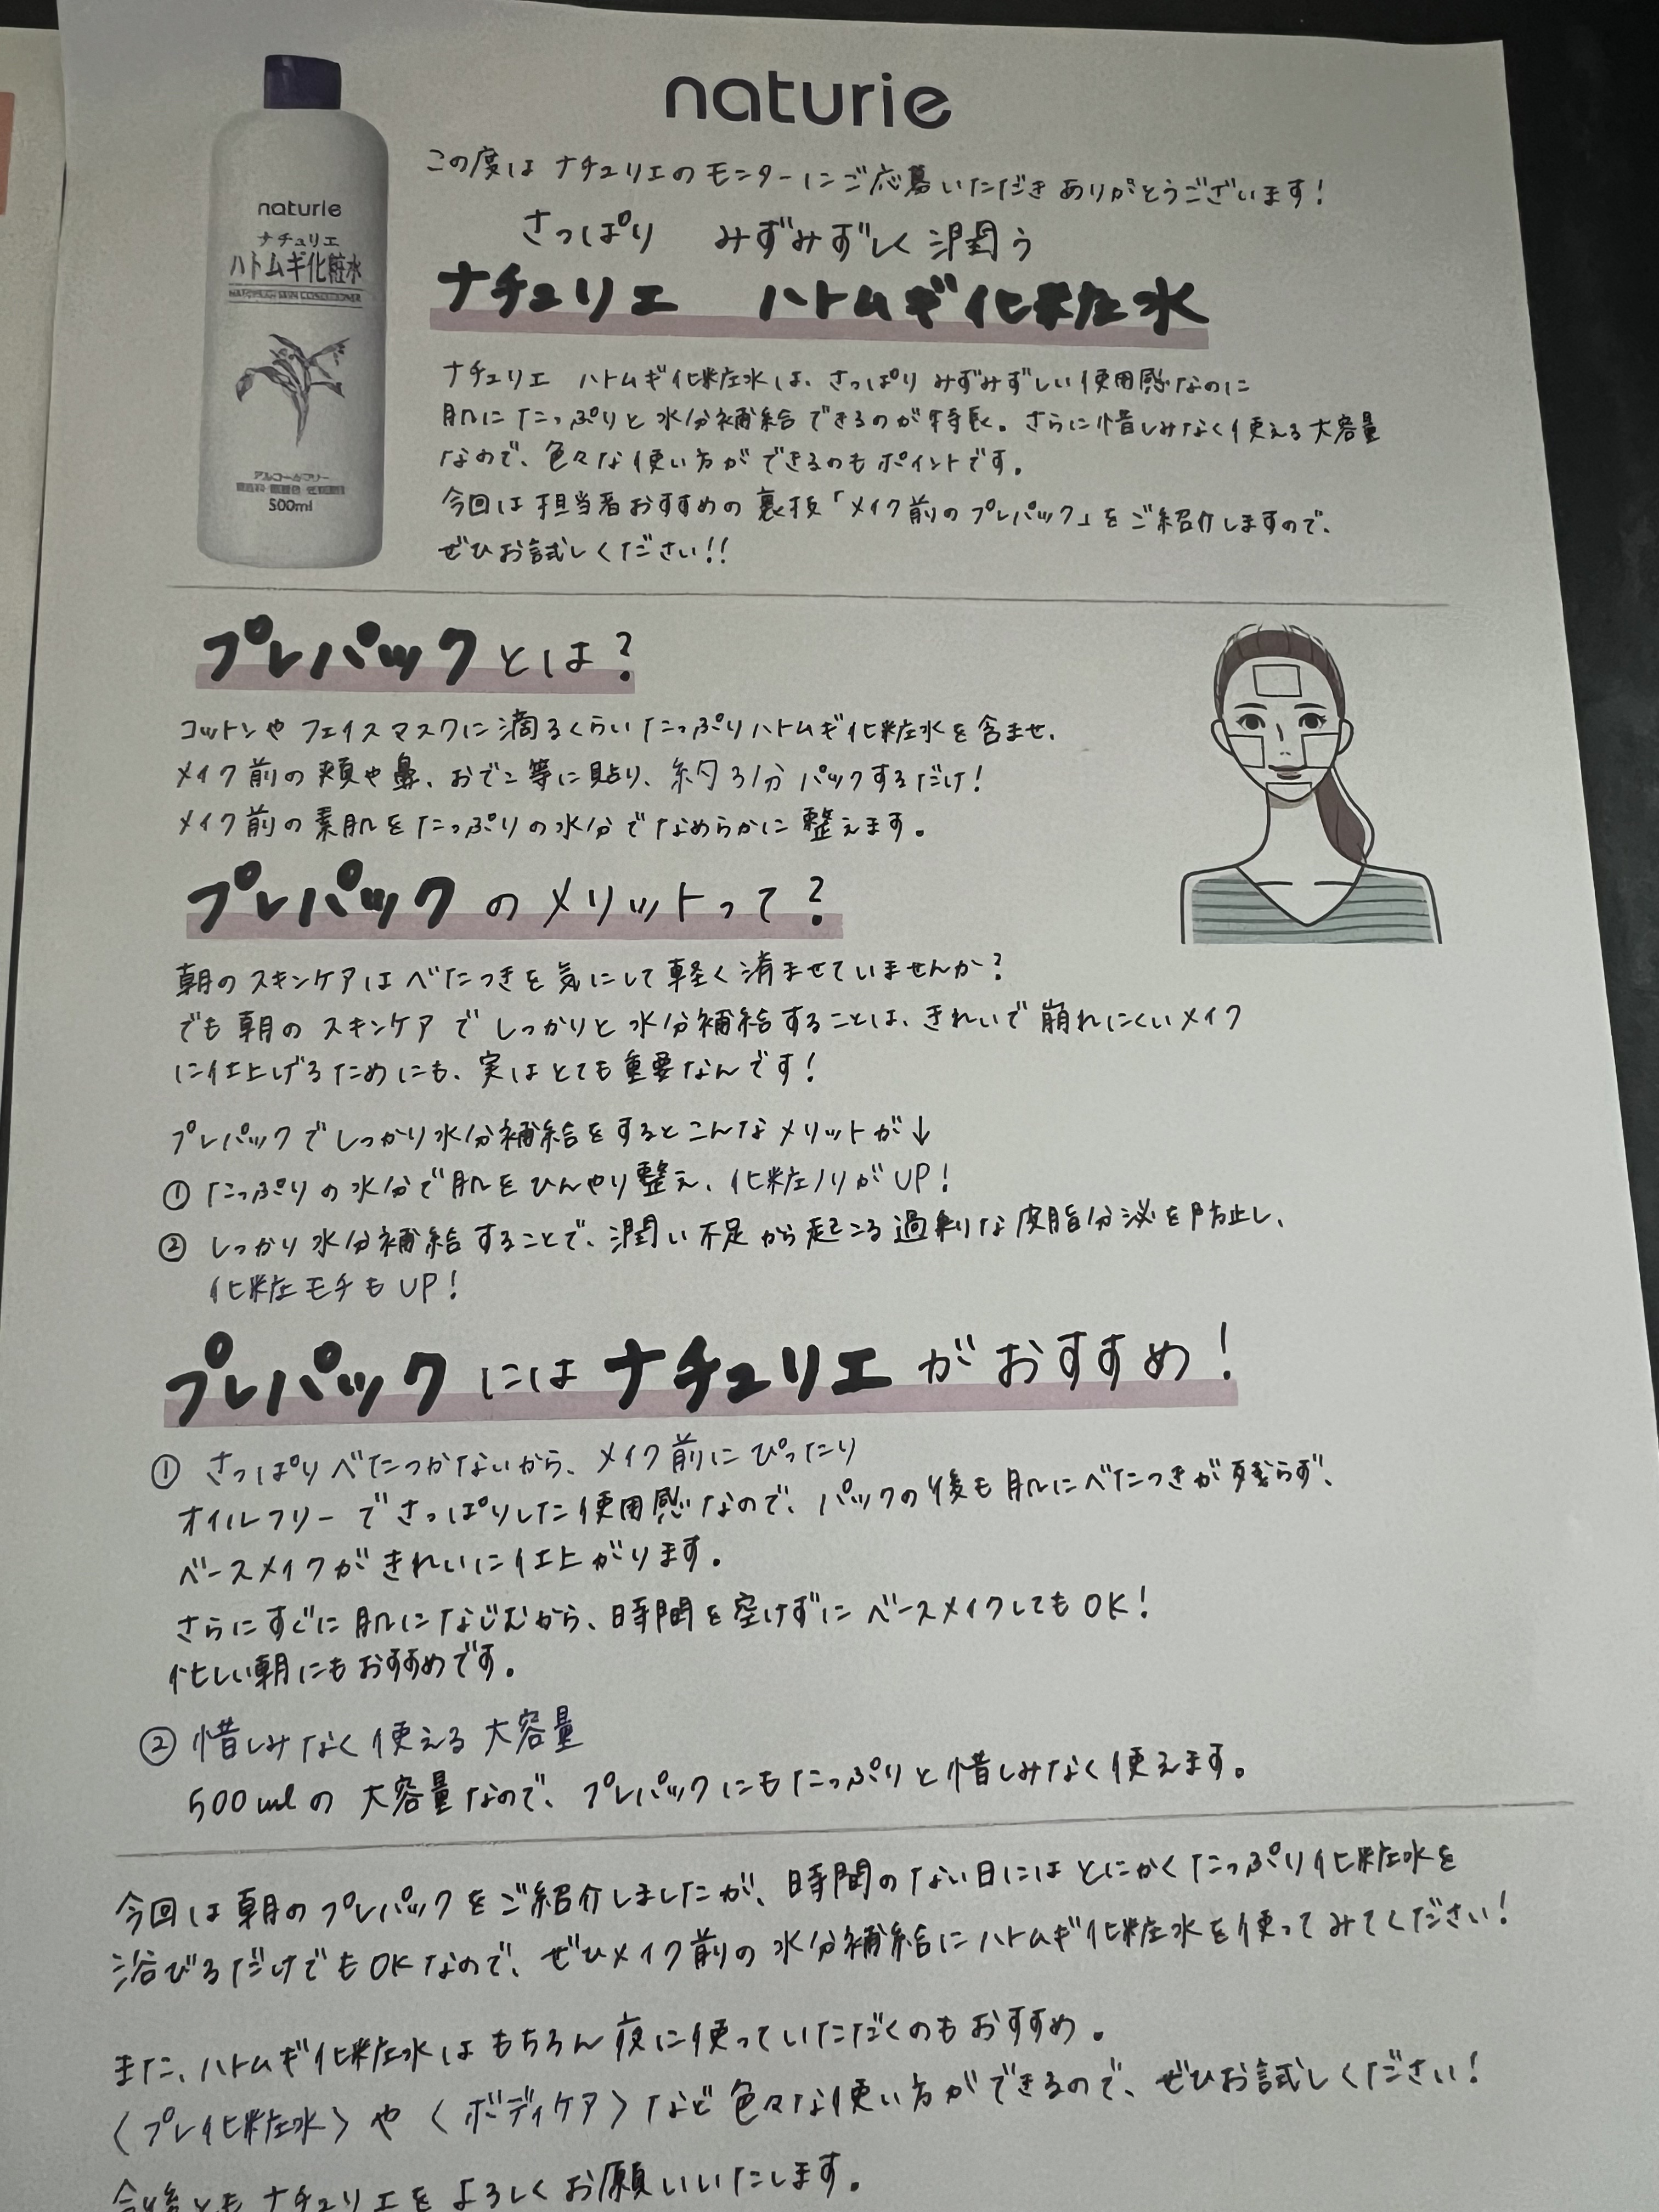 naturie
この度は ナチュリエのモニターにご応募いただき ありがとうございます!
さっぱり みずみずしく潤う
ナチュリエ ハトムギ化粧水
naturie
ナチュリエ
ハトムギ化粧水
HATOMUGI SKIN CONDITIONER
アルコールフリー
500ml
ナチュリエ ハトムギ化粧水は、さっぱり みずみずしい使用感なのに
肌に たっぷりと 水分補給できるのが特長。さらに惜しみなく使える大容量
なので、色々な使い方ができるのもポイントです。
今回は担当者おすすめの裏技「メイク前のプレパック」をご紹介しますので、
ぜひお試しください!!
プレパックとは?
コットンや フェイスマスクに滴るくらい たっぷりハトムギ化粧水を含ませ、
メイク前の頬や鼻、おでこ等に貼り、約3分パックするだけ!
メイク前の素肌をたっぷりの水分でなめらかに整えます。
プレパックのメリットって?
朝のスキンケアは べたつきを気にして軽く済ませていませんか?
でも朝の スキンケアで しっかりと水分補給することは、きれいで崩れにくいメイク
に仕上げるためにも、実はとても重要なんです!
プレパックでしっかり水分補給をするとこんなメリットが↓
① たっぷりの水分で肌をひんやり整え、化粧ノリがUP!
② しっかり水分補給することで、潤い不足から起こる過剰な皮脂分泌を防止し、
化粧モチもUP!
プレパックにはナチュリエがおすすめ!
① さっぱりべたつかないから、メイク前にぴったり
オイルフリーでさっぱりした使用感なので、パックの後も肌にべたつきが残らず、
ベースメイクがきれいに仕上がります。
さらにすぐに肌になじむから、時間を空けずにベースメイクしてもOK!
忙しい朝にもおすすめです。
② 惜しみなく使える大容量
500mlの大容量なので、プレパックにもたっぷりと惜しみなく使えます。
今回は朝のプレパックをご紹介しましたが、時間のない日にはとにかくたっぷり化粧水を
浴びるだけでもOKなので、ぜひメイク前の水分補給にハトムギ化粧水を使ってみてください!
また、ハトムギ化粧水はもちろん夜に使っていただくのもおすすめ。
〈プレ化粧水〉や〈ボディケア〉など色々な使い方ができるので、ぜひお試しください!
今後ともナチュリエをよろしくお願いいたします。